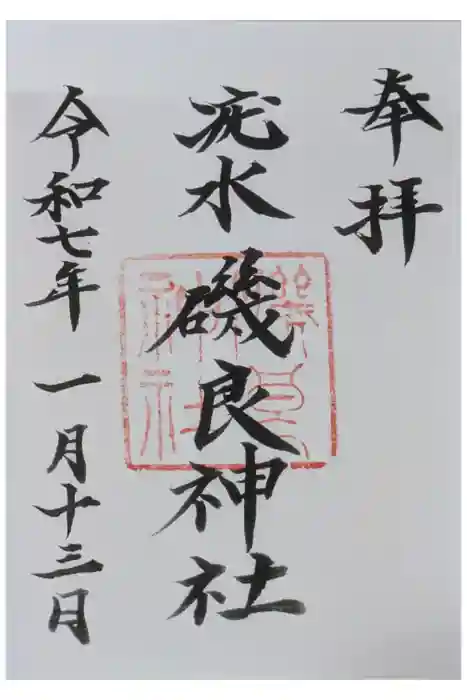 奉拝
疣水磯良神社
令和七年一月十三日